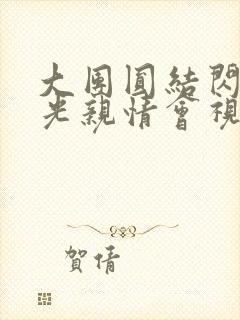 大團圓結閃
光親情會視
賀倩